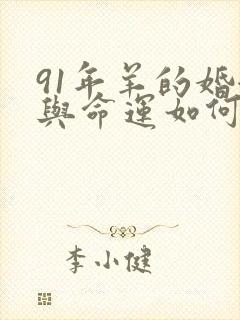 91年羊的婚
與命運如何
李小健